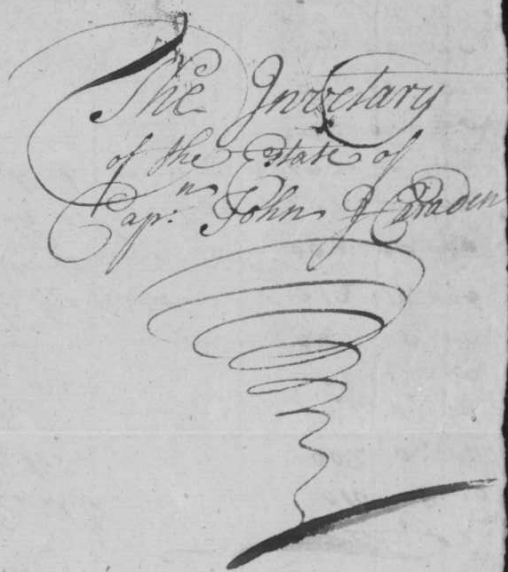 The Invetary
of the Estate of
Capn: John